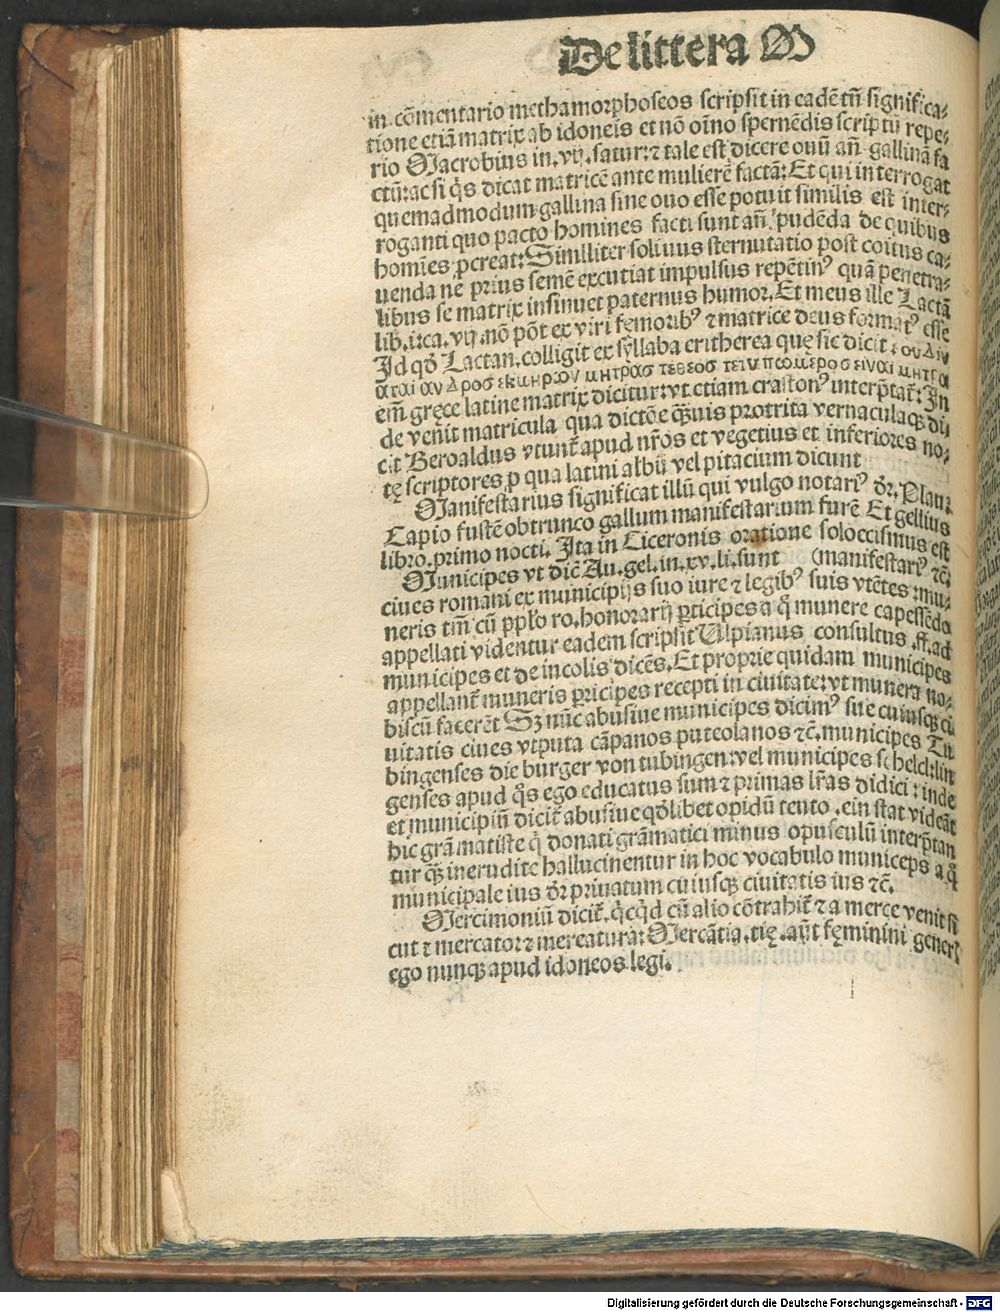 De littera M
in cōmentario methamorphoseos scripsit in eadē tñ significa-
tione etiā matrix ab idoneis et nō oīno spernēdis scriptū repe-
rio Macrobius in .vij. satur: ⁊ tale est dicere ouū añ gallinā fa
ctū: ac si q̄s dicat matricē ante mulierē factā: Et qui interrogat
quemadmodum gallina sine ouo esse potuit similis est inter-
roganti quo pacto homines facti sunt añ pudēda de quibus
homīes ꝓcreat: Similliter soliuus sternutatio post coitus ca-
uenda ne prius semē excutiat impulsus repētinꝰ quā penetra-
libus se matrix insinuet paternus humor. Et meus ille Lactā
lib. ca. vij. nō pōt ex viri femoribꝰ ⁊ matrice deus formatꝰ esse
Id qđ Lactan. colligit ex syllaba eritherea quę sic dicit : ου Δυ
αται αν Δρος εκ μηρων μητρας τε θεος τετυπωμερος ειναι μητρα
em̄ gręce latine matrix dicitur: vt etiam crastonꝰ interp̄tat̄: In
de venit matricula qua dictōe q̄uis protrita vernaculaqꝫ di
cit Beroaldus vtunt̄ apud nr̄os et vegetius et inferiores no-
tę scriptores ꝓ qua latini albū vel pitacium dicunt
Manifestarius significat illū qui vulgo notariꝰ dr̄. Plau.
Capio fustē obtrunco gallum manifestarium furē Et gellius
libro. primo nocti. Ita in Ciceronis oratione soloecismus est
Municipes vt dic̄ Au. gel. in .xv. li. sunt (manifestariꝰ ⁊c̄.
ciues romani ex municipijs suo iure ⁊ legibꝰ suis vtētes: mu-
neris tm̄ cū pplo ro. honorarij ꝑticipes a q̄ munere capessēdo
appellati videntur eadem scripsit Ulpianus consultus .ff. ad
municipes et de incolis dicēs. Et proprie quidam municipes
appellant̄ muneris ꝑticipes recepti in ciuitate: vt munera no-
biscū facerēt Sꝫ nūc abusiue municipes dicimꝰ sue cuiusqꝫ ci
uitatis ciues vtputa cāpanos puteolanos ⁊c̄. municipes Tu
bingenses die burger von tubingen: vel municipes schelcklin
genses apud q̄s ego educatus sum ⁊ primas lr̄as didici: inde
et municipiū dicit̄ abusiue qđlibet opidū teuto. ein stat videāt
hic grāmatiste q̄ donati grāmatici minus opusculū interp̄tan
tur q̄ꝫ inerudite hallucinentur in hoc vocabulo municeps a q̄
municipale ius dr̄ priuatum cuiusqꝫ ciuitatis ius ⁊c̄.
Mercimoniū dicit̄. q̄cqđ cū alio cōtrahit̄ ⁊ a merce venit si
cut ⁊ mercator ⁊ mercatura: Mercātia. tię. aūt fęminini generꝭ
ego nunqꝫ apud idoneos legi.
Digitalisierung gefördert durch die Deutsche Forschungsgemeinschaft - DFG